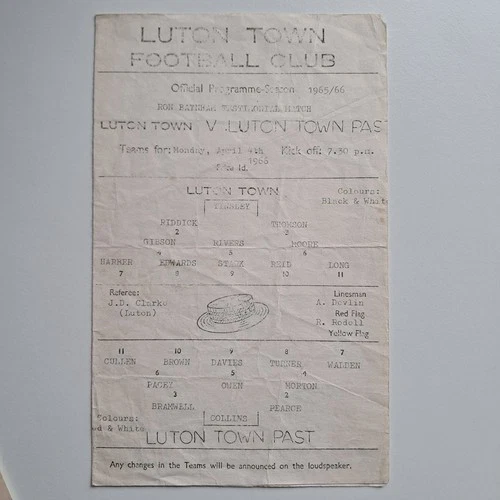 LUTON TOWN
FOOTBALL CLUB
Official Programme-Season 1965/66
RON BAYNHAM TESTIMONIAL MATCH
LUTON TOWN V LUTON TOWN PAST
Teams for: Monday, April 4th 1966 Kick off: 7.30 p.m.
LUTON TOWN
Colours:
Black & White
RIDDICK THOMSON
2 3
GIBSON RIVERS MOORE
4 5 6
HARBER EDWARDS STARK REID LONG
7 8 9 10 11
Referee:
J.D. Clarke
(Luton)
Linesman
A. Devlin
Red Flag
R. Redoll
Yellow Flag
11 10 9 8 7
CULLEN BROWN DAVIES TURNER WALDEN
6 5 4
PACEY OWEN MORTON
3 2
BRAMWELL PEARCE
Colours:
ed & White
COLLINS
LUTON TOWN PAST
Any changes in the Teams will be announced on the loudspeaker.